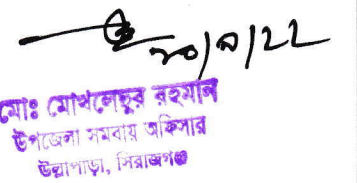 ২০/৯/২২
মোঃ মোখলেছুর রহমান
উপজেলা সমবায় অফিসার
উল্লাপাড়া, সিরাজগঞ্জ